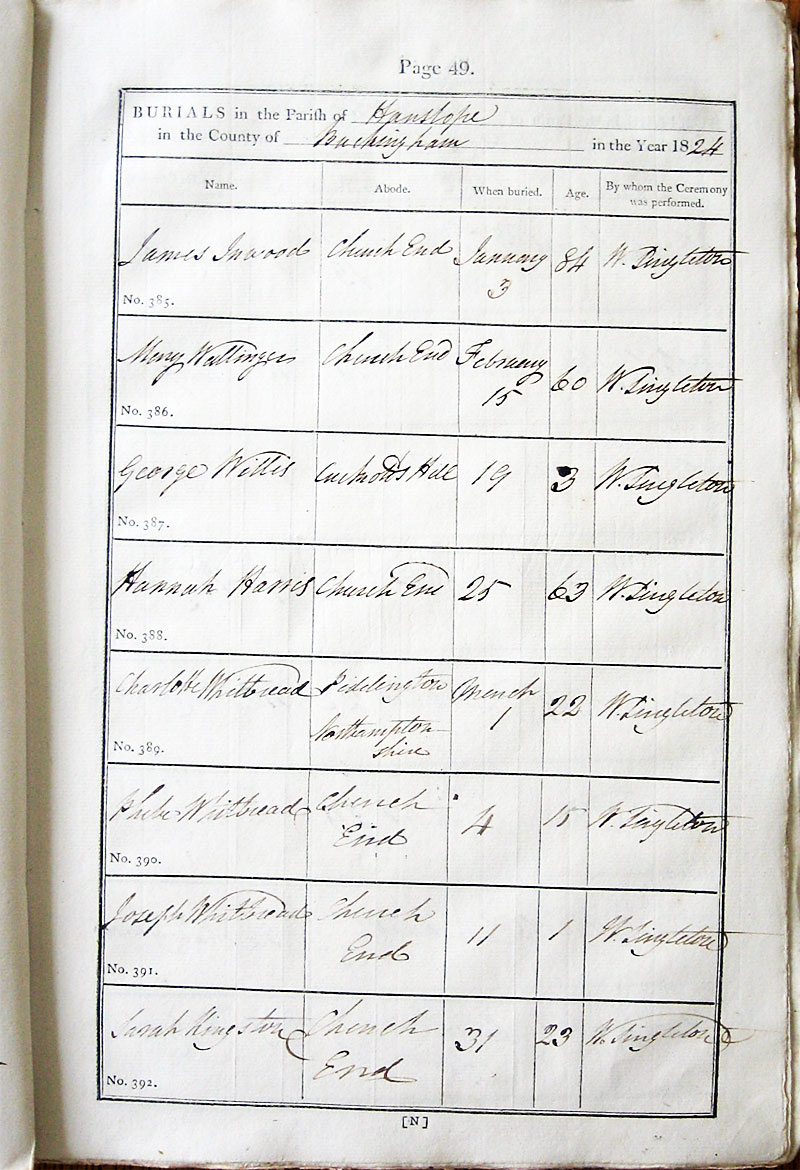 Page 49.
BURIALS in the Parish of Hanslope
in the County of Buckingham in the Year 1824
Name. Abode. When buried. Age. By whom the Ceremony was performed.
James Inwood Church End January 3 84 W. Singleton
No. 385.
Mary Wallinger Church End February 15 60 W. Singleton
No. 386.
George Willis Hill 19 3 W. Singleton
No. 387.
Hannah Harris Church End 25 63 W. Singleton
No. 388.
Charlotte Whitbread Piddington Northampton shire March 1 22 W. Singleton
No. 389.
Phebe Whitbread Church End 4 15 W. Singleton
No. 390.
Joseph Whitbread Church End 11 1 W. Singleton
No. 391.
Sarah Kingston Church End 31 23 W. Singleton
No. 392.
[N]